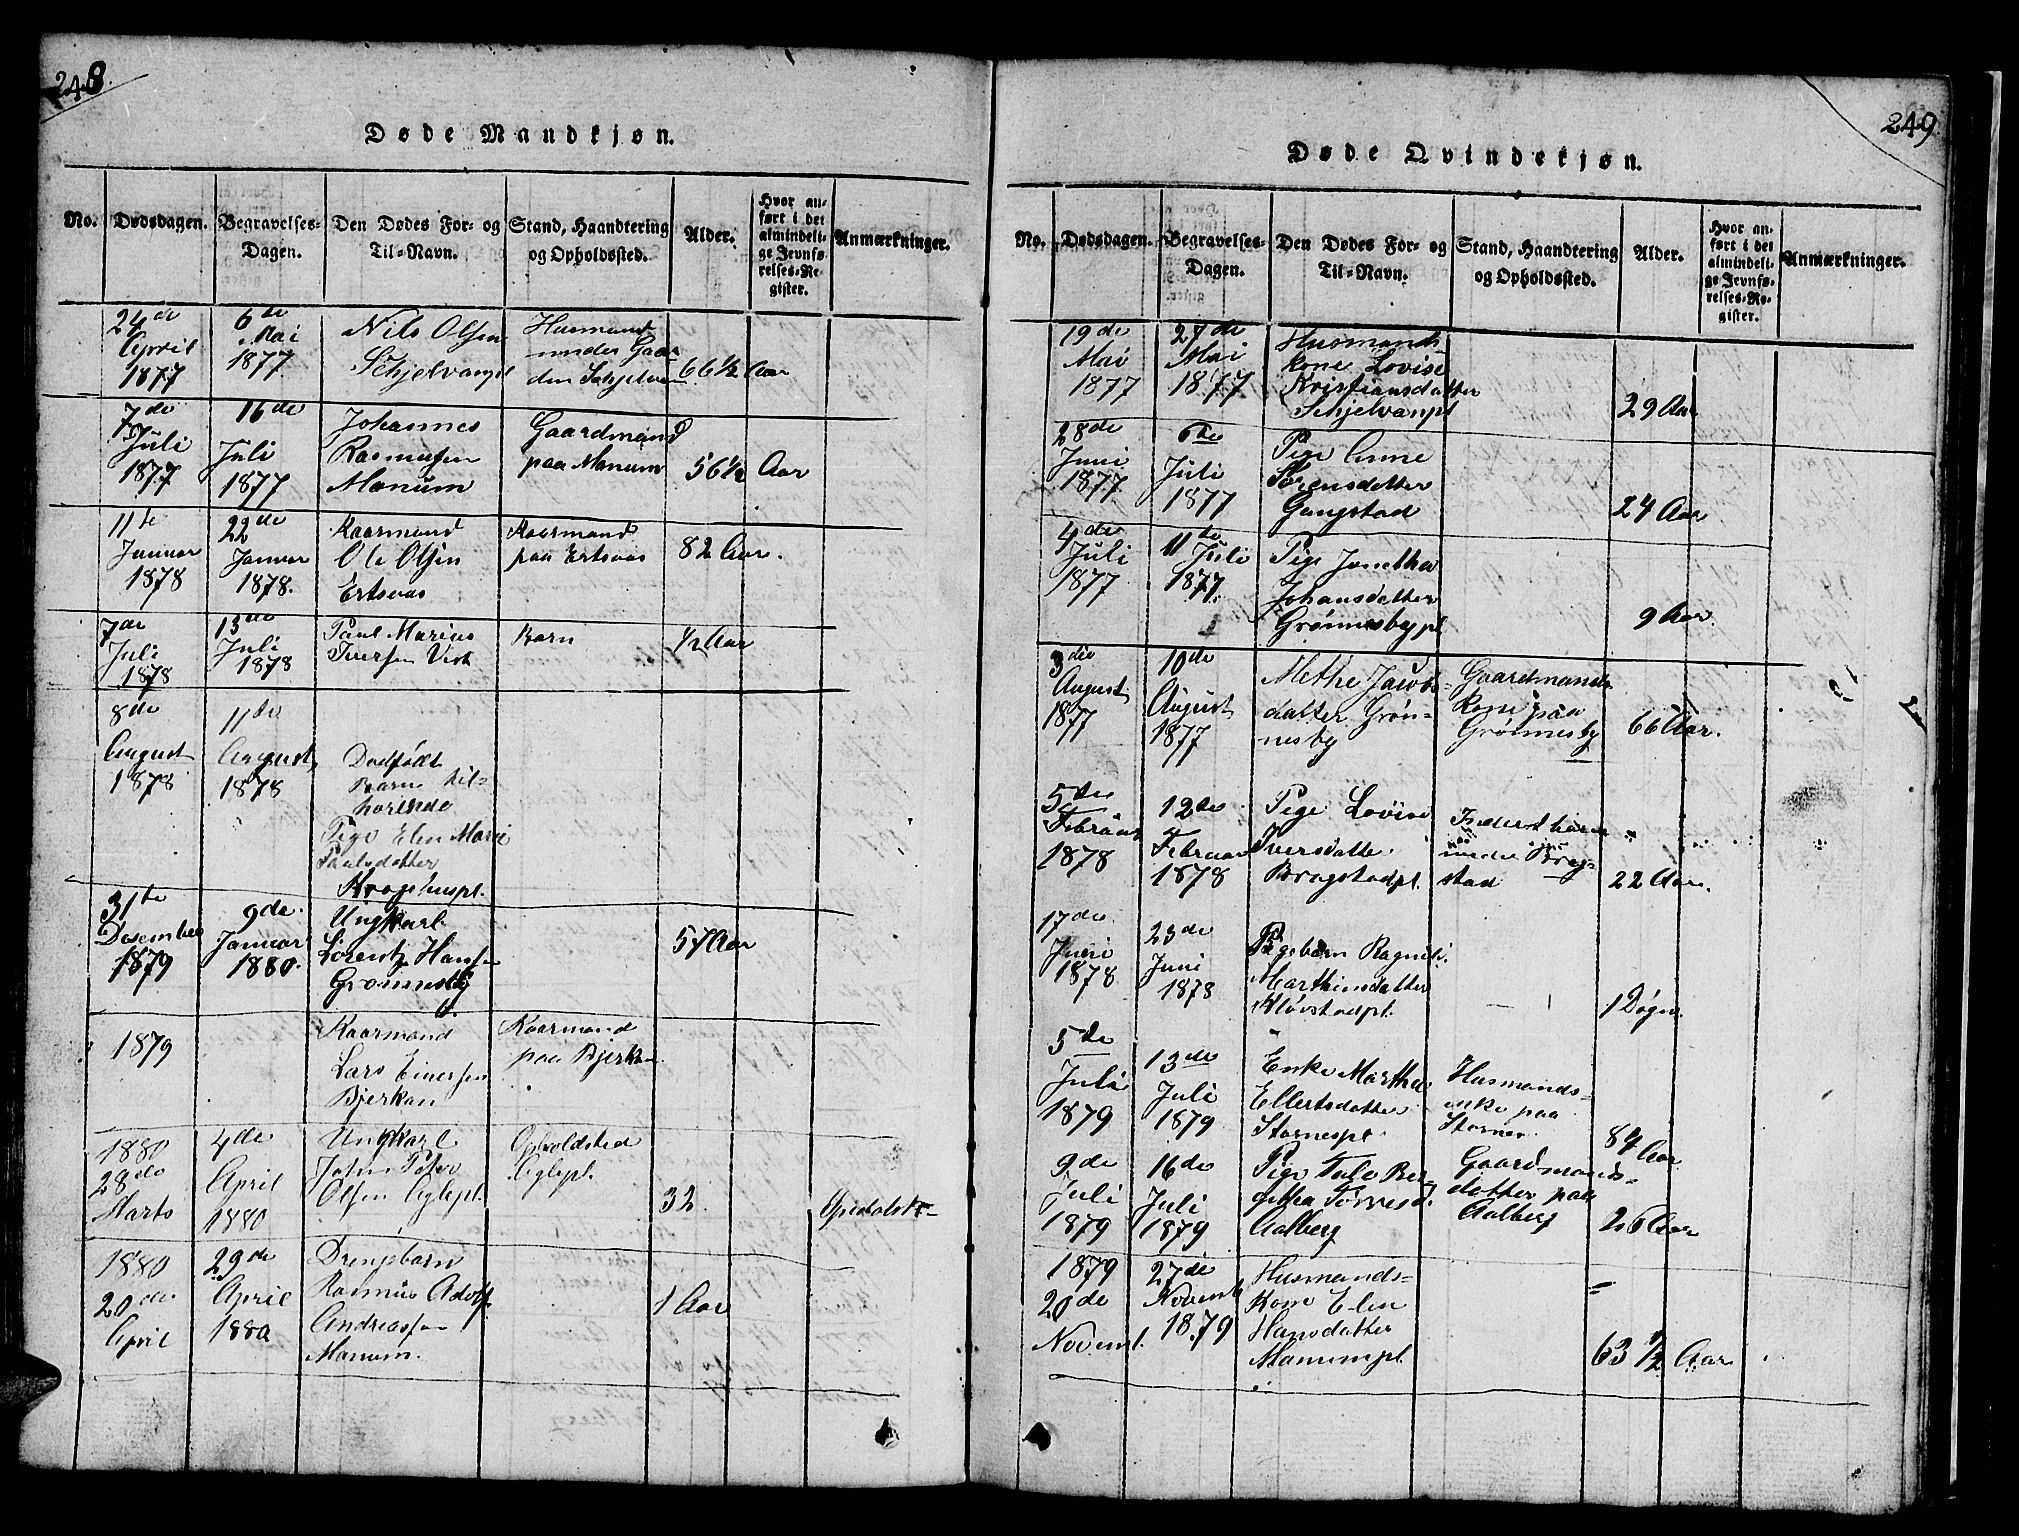 248.
Døde Mandkjøn.
No.
Dødsdagen.
Begravelses-
Dagen.
Den Dødes For- og
Til-Navn.
Stand, Haandtering
og Opholdssted.
Alder.
Hvor an-
ført i det
almindeli-
ge Jevnfø-
relses-Re-
gister.
Anmærkninger.
24de
April
1877
6te
Mai
1877
Nils Olsen
Schjelvanpl
Husmand
under Gaar
den Schjelvan
66½ Aar
7de
Juli
1877
16de
Juli
1877
Johannes
Rasmusen
Manum
Gaardmand
paa Manum
56½ Aar
11te
Januar
1878
22de
Januar
1878.
Kaarmand
Ole Olsen
Ertsvas
Kaarmand
paa Ertsvas
82 Aar.
7de
Juli
1878
13de
Juli
1878
Paul Marius
Iversen Vist
Barn
½ Aar
8de
August
1878
11te
August
1878
Dødfødt
Barn til-
hørende
Pige Elen Marie
Paulsdatter
31te
Desember
1879
9de
Januar
1880.
Ungkarl
Lorentz Hansen
Grønnesby
57 Aar
1879
Kaarmand
Lars Einersen
Bjerkan
Kaarmand
paa Bjerkan
1880
28de
Marts
4de
April
1880
Ungkarl
John Peter
Olsen Oglepl.
Opholdsted
Oglepl.
32
1880
20de
April
29de
April
1880
Drengebarn
Rasmus Adolf
Andreassen
Manum.
1 Aar
249.
Døde Qvindekjøn.
No.
Dødsdagen.
Begravelses-
Dagen.
Den Dødes For- og
Til-Navn.
Stand, Haandtering
og Opholdssted.
Alder.
Hvor an-
ført i det
almindeli-
ge Jevnfø-
relses-Re-
gister.
Anmærkninger.
19de
Mai
1877
27de
Mai
1877
Husmands
kone Lovise
Kristiansdatter
Schjelvanpl
29 Aar
28de
Juni
1877
6te
Juli
1877
Pige Anne
Sørensdatter
Gangstad
24 Aar
4de
Juli
1877
11te
Juli
1877
Pige Janetha
Johansdatter
Grønnesbypl
9 Aar.
3die
August
1877
10de
August
1877
Methe Jacobs-
datter Grøn-
nesby
Gaardmands
Kone paa
Grønnesby
66 Aar.
5te
Februar
1878
12te
Februar
1878
Pige Lovise
Iversdatter
Bragstadpl.
stad
22 Aar.
17de
Juni
1878
23de
Juni
1878
Pigebarn Ragnil
Marthinsdatter
Kløvstadpl.
1 Døgn
5te
Juli
1879
13de
Juli
1879
Enke Martha
Ellertsdatter
Stornespl.
Husmands-
enke paa
Stornes.
84 Aar
9de
Juli
1879
16de
Juli
1879
Aalberg
Gaardmands-
datter paa
Aalberg
26 Aar
1879
20de
Novemb.
27de
Novemb
1879
Husmands-
Kone Elen
Hansdatter
Manumpl.
63 ½ Aar